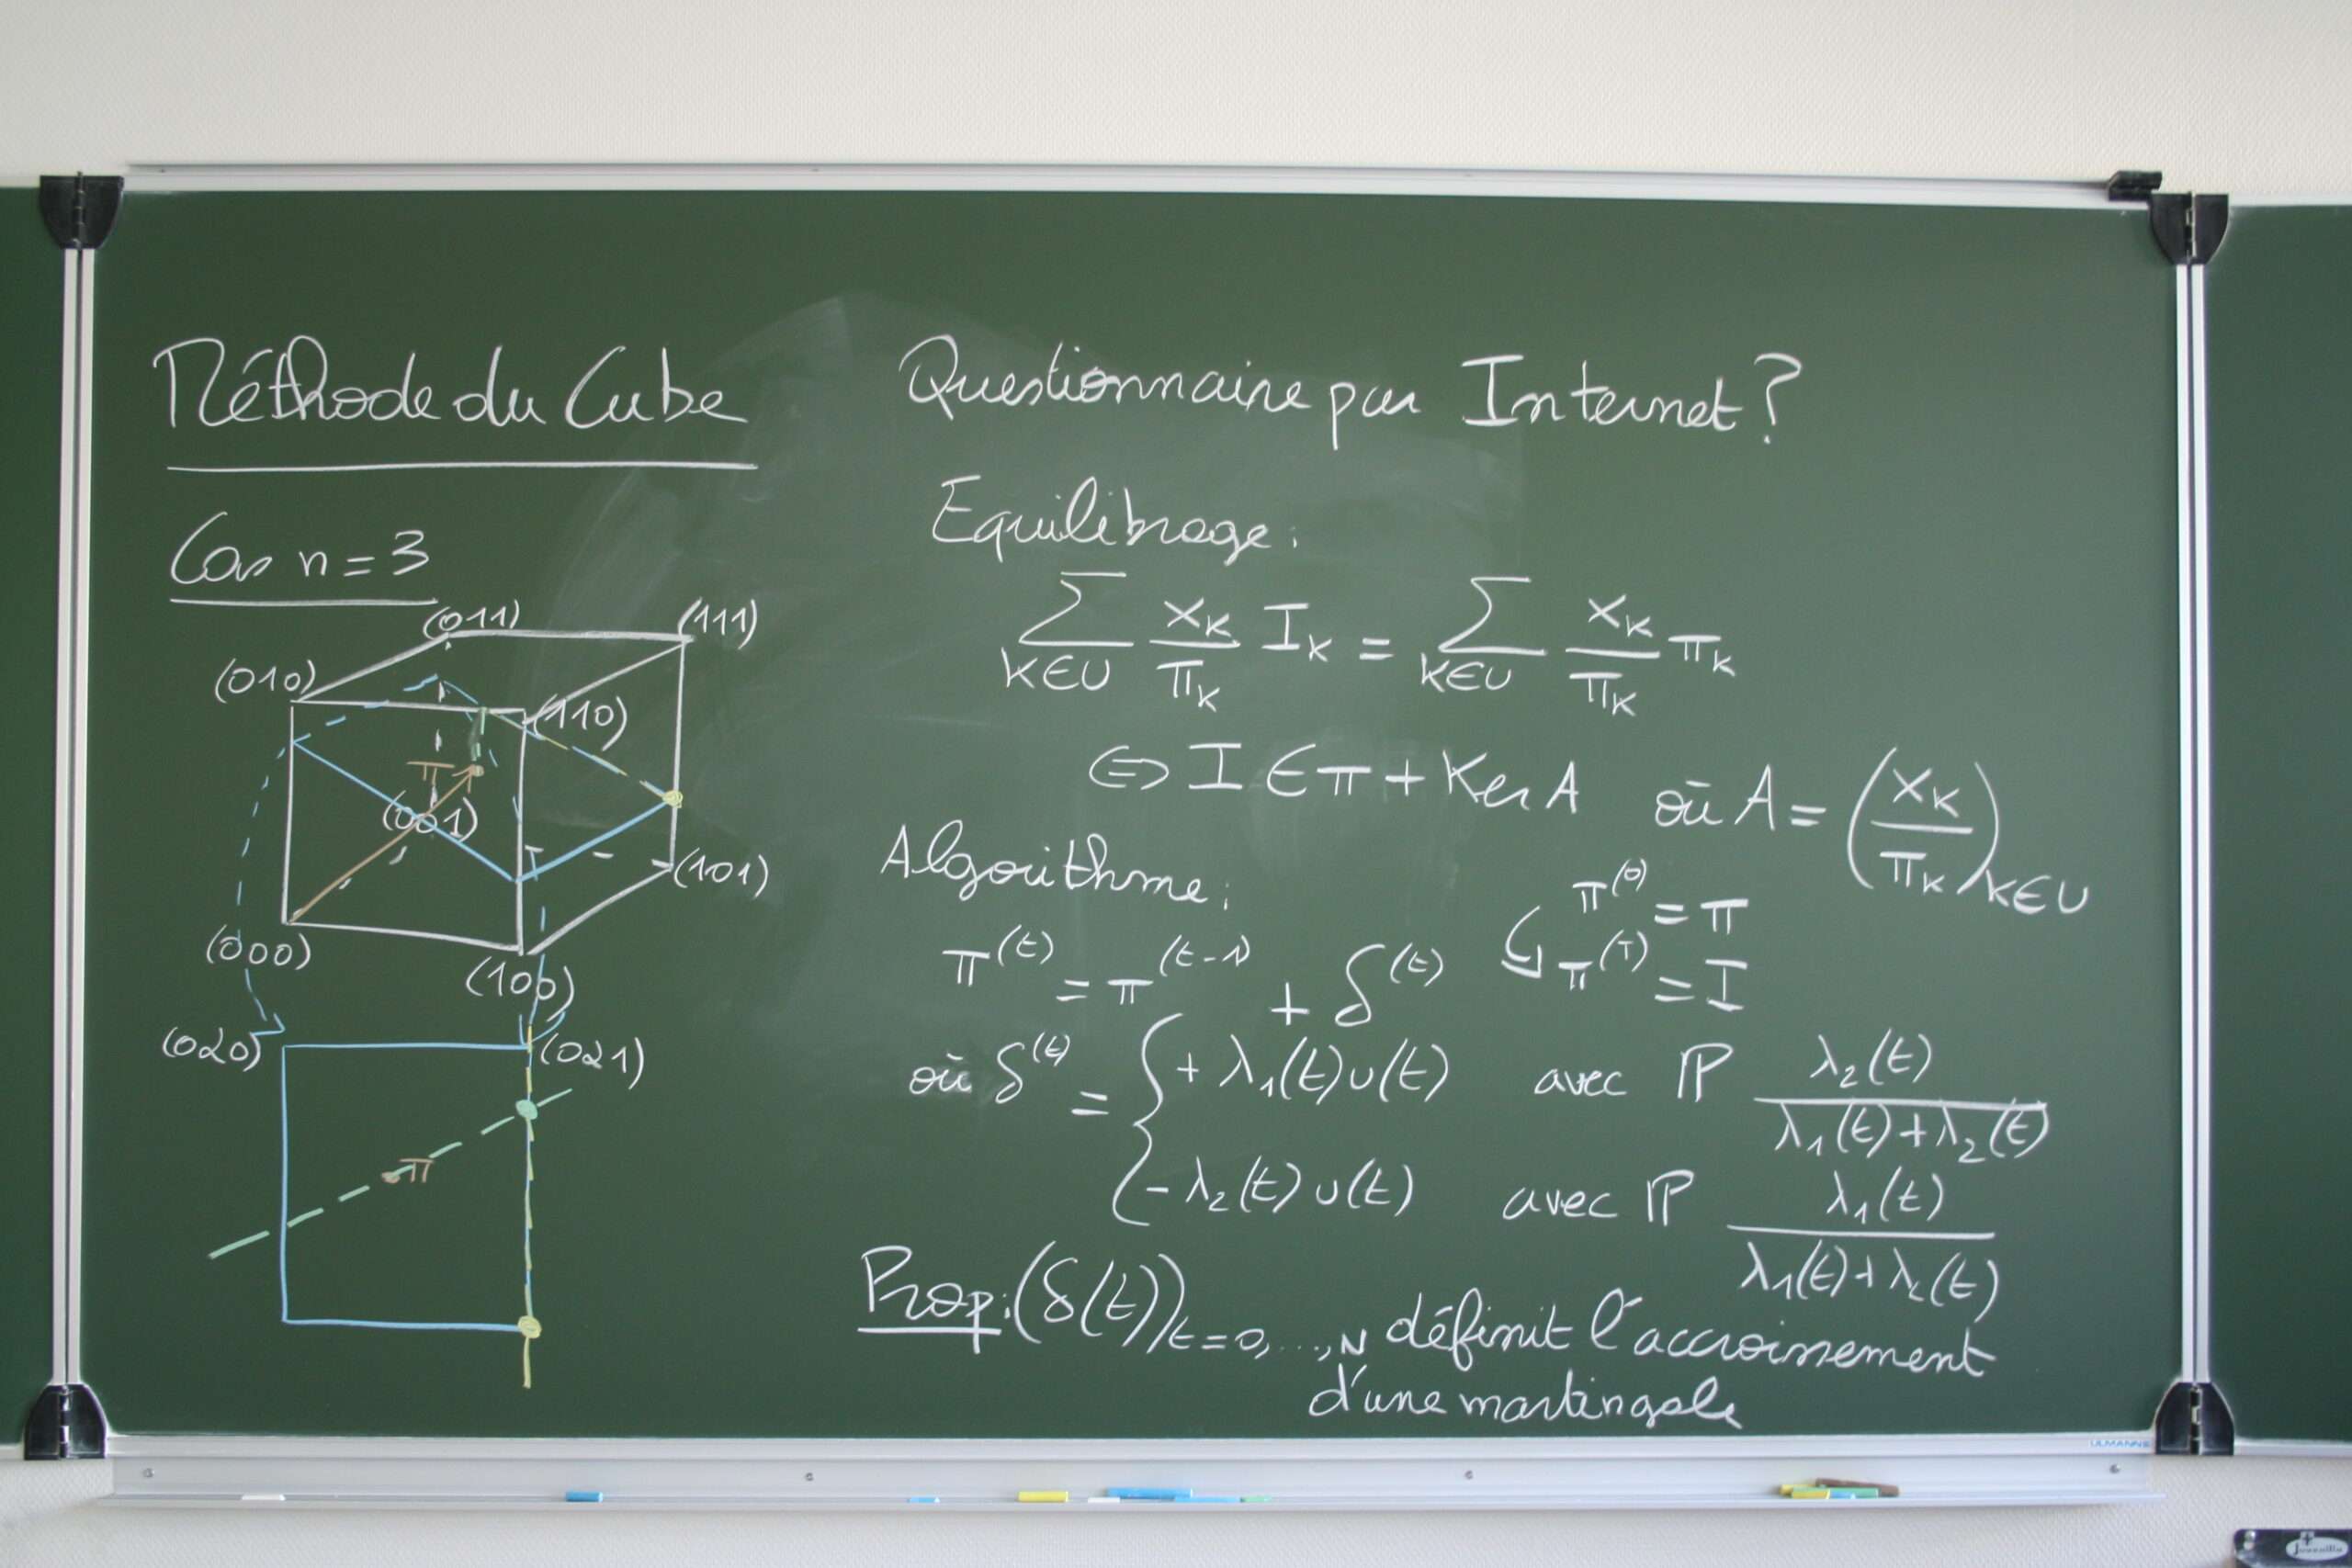 Méthode du Cube
Cas n = 3
(011) (111)
(010) (110)
π
(001)
(101)
(000) (100)
(020) (021)
π
Questionnaire par Internet ?
Equilibrage :
∑_{k∈U} x_k/π_k I_k = ∑_{k∈U} x_k/π_k π_k
⇔ I ∈ π + Ker A où A = (x_k/π_k)_{k∈U}
Algorithme : π^(0) = π
π^(t) = π^(t-1) + δ^(t) π^(T) = I
où δ^(t) = { + λ₁(t) u(t) avec ℙ λ₂(t)/(λ₁(t)+λ₂(t))
- λ₂(t) u(t) avec ℙ λ₁(t)/(λ₁(t)+λ₂(t))
Prop : (δ(t))_{t=0,...,N} définit l'accroissement
d'une martingale
ULMANN